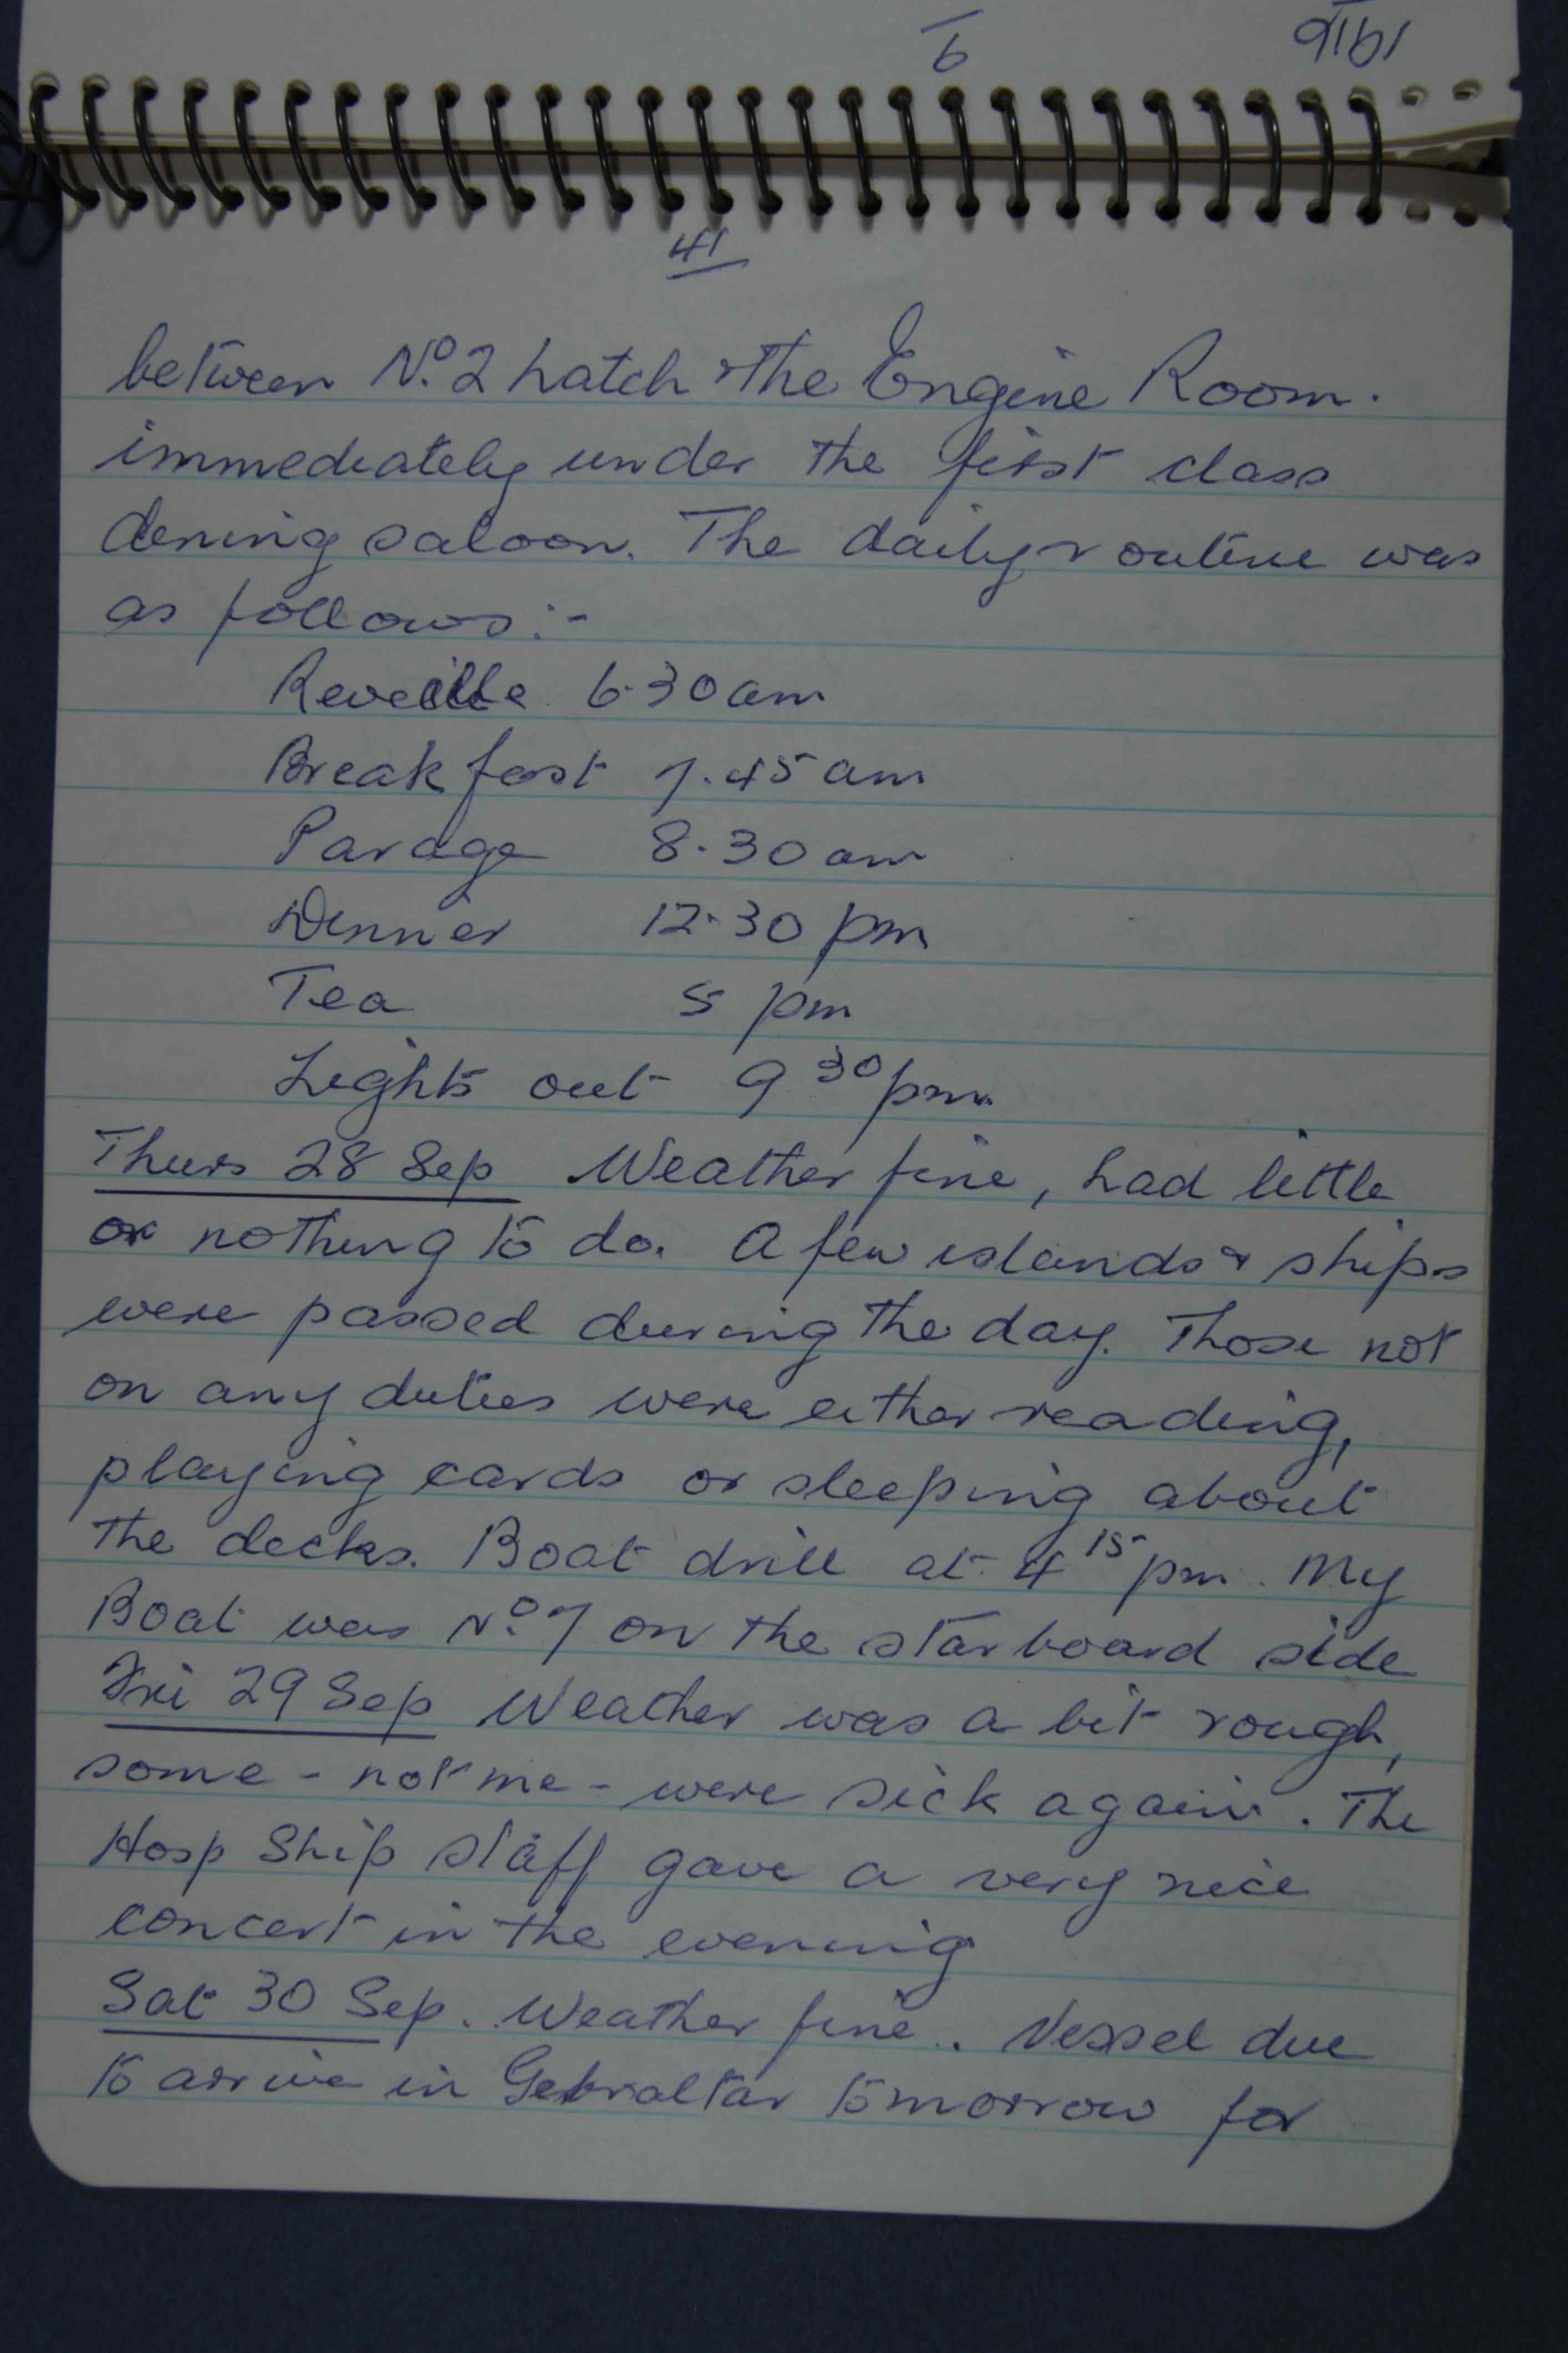 41
between No. 2 hatch & the Engine Room.
immediately under the first class
dining saloon. The daily routine was
as follows:-
Reveille 6.30 am
Breakfast 7.45 am
Parage 8.30 am
Dinner 12.30 pm
Tea 5 pm
Lights out 9 30 pm
Thurs 28 Sep Weather fine, had little
or nothing to do. A few islands & ships
were passed during the day. Those not
on any duties were either reading,
playing cards or sleeping about
the decks. Boat drill at 4 15 pm. My
Boat was No. 7 on the starboard side
Fri 29 Sep Weather was a bit rough,
some - not me - were sick again. The
Hosp Ship staff gave a very nice
concert in the evening
Sat 30 Sep. Weather fine. Vessel due
to arrive in Gebraltar tomorrow for